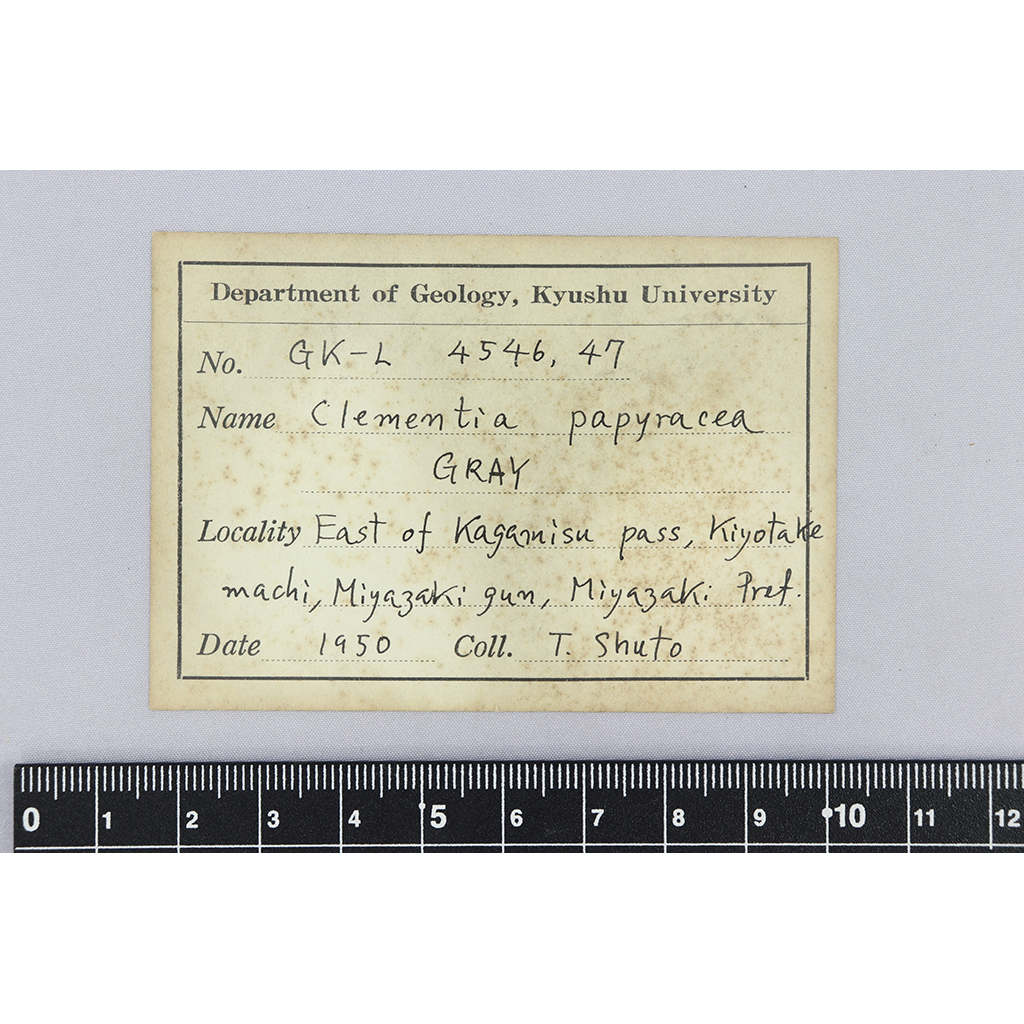 Department of Geology, Kyushu University
No. GK-L 4546, 47
Name Clementia papyracea
GRAY
Locality East of Kagamisu pass, Kiyotake
machi, Miyazaki gun, Miyazaki Pref.
Date 1950 Coll. T. Shuto
0 1 2 3 4 5 6 7 8 9 10 11 12